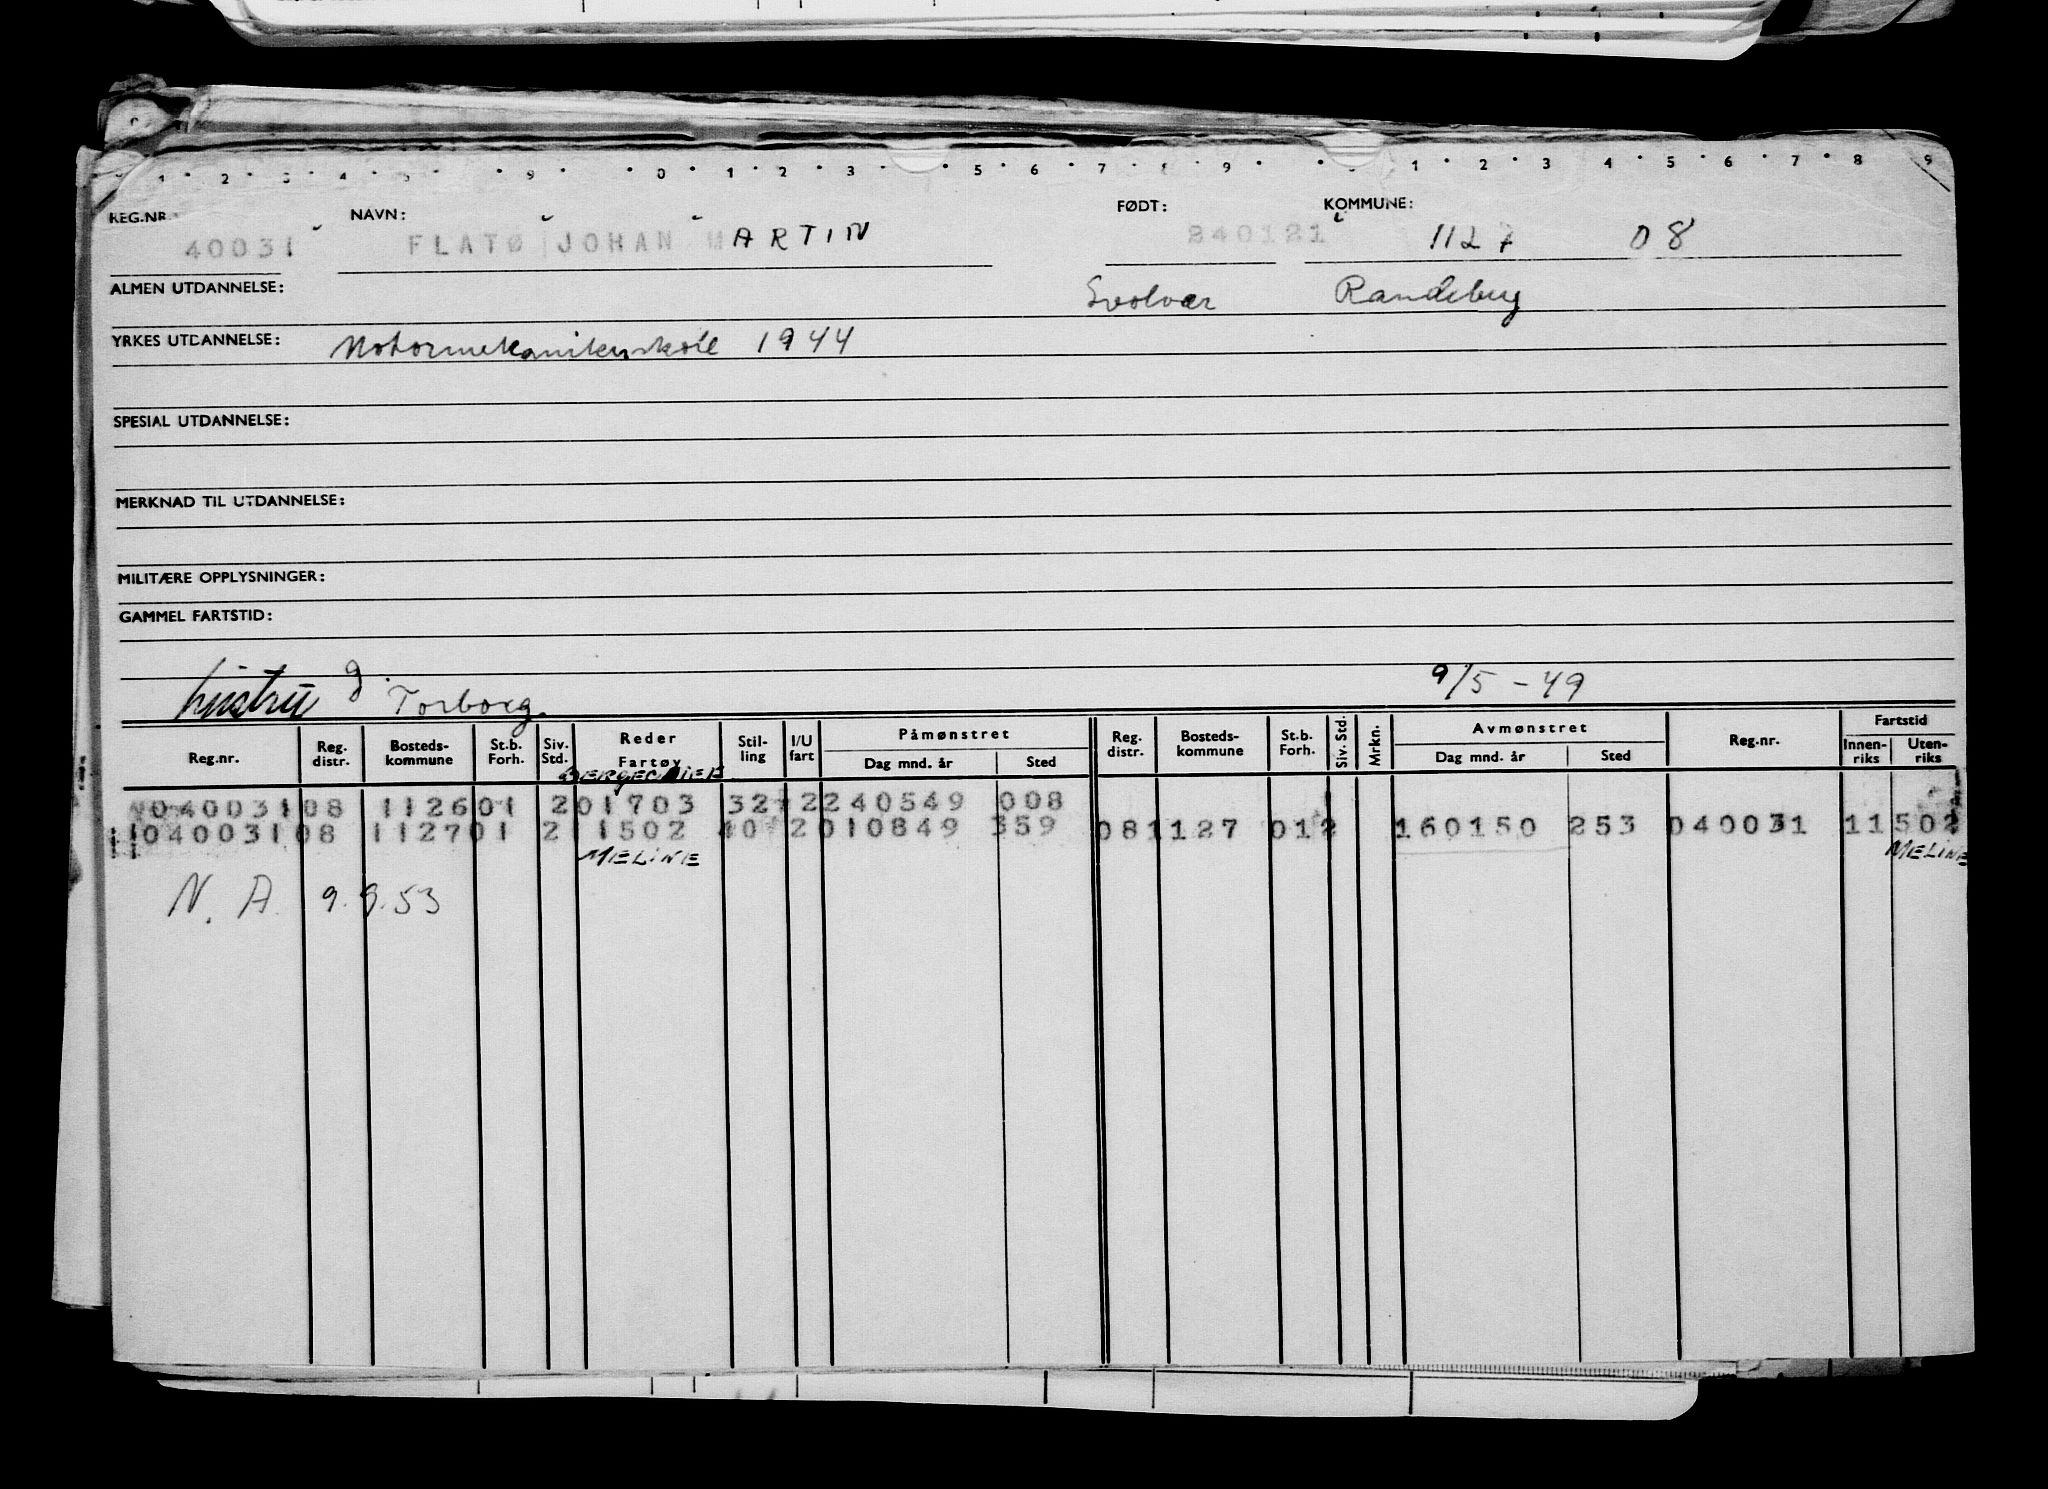 1 2 3 4 9 0 1 2 3 5 6 7 8 9 1 2 3 4 5 6 7 8 9
REG.NR. NAVN: FØDT: KOMMUNE:
40031 FLATØ JOHAN MARTIN 240121 1127 08
ALMEN UTDANNELSE: Svolvær Randeberg
YRKES UTDANNELSE: Motormekanikerskole 1944
SPESIAL UTDANNELSE:
MERKNAD TIL UTDANNELSE:
MILITÆRE OPPLYSNINGER:
GAMMEL FARTSTID:
hustru g. Torborg. 9/5-49
Reg.nr. Reg. distr. Bosteds-kommune St.b. Forh. Siv. Std. Reder Fartøy Stil-ling I/U fart Påmønstret Dag mnd. år Sted Reg. distr. Bosteds-kommune St.b. Forh. Siv. Std. Mrkn. Avmønstret Dag mnd. år Sted Reg.nr. Fartstid Innen-riks Uten-riks
04003108 112601 201703 32 2240549 008
104003108 112701 211502 40 2010849 359 081127 012 160150 253 040031 11502
MELINE MELINE
N.A. 9.9.53